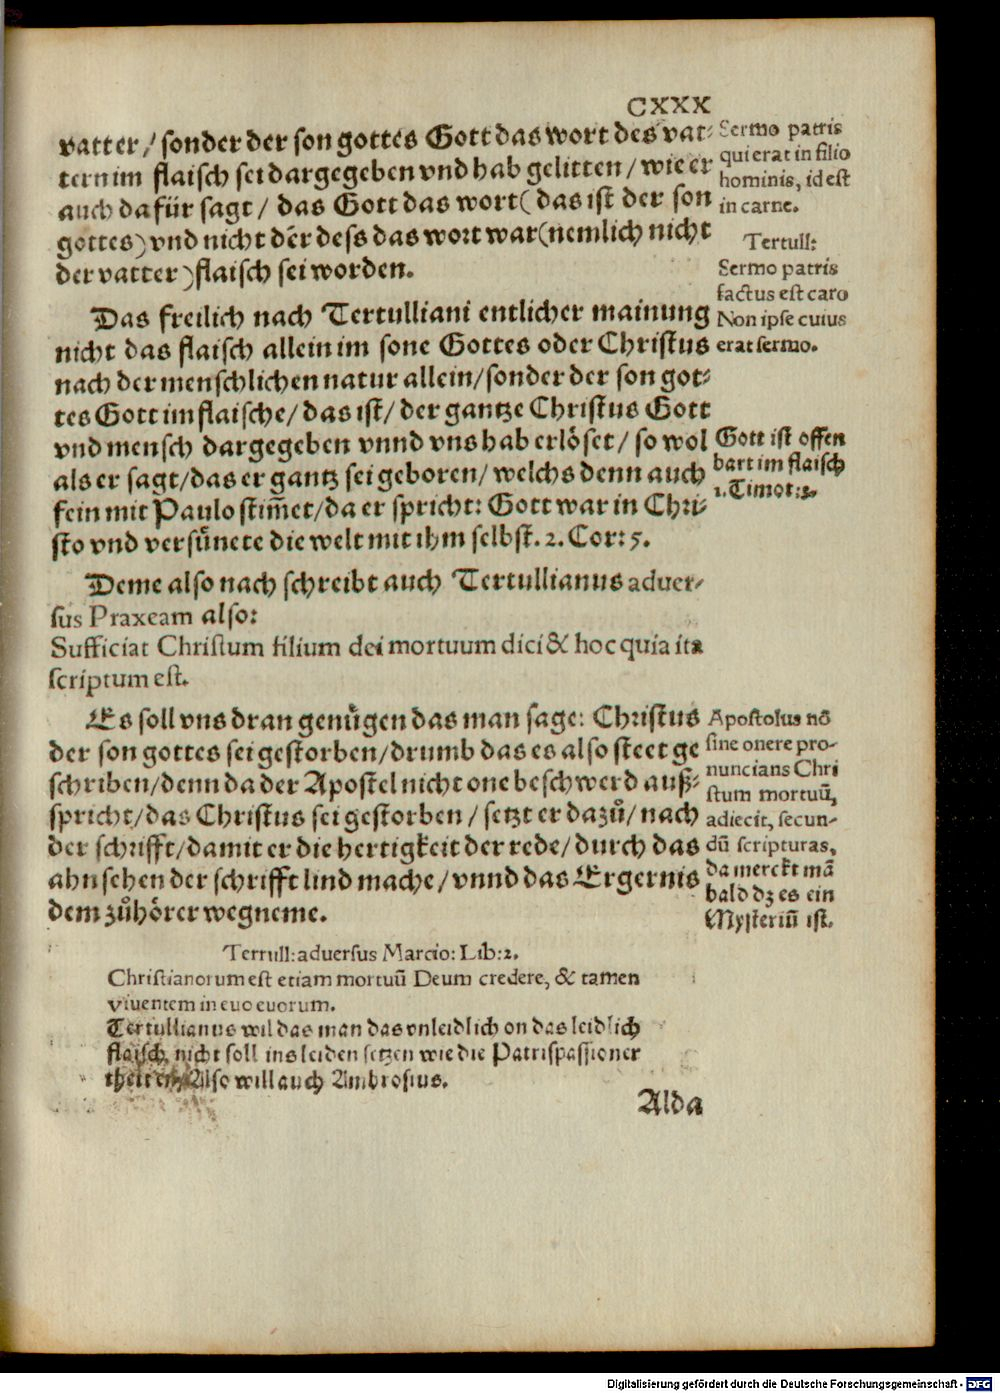 CXXX
vatter/ sonder der son gottes Gott das wort des vat⸗
tern im flaisch sei dargegeben vnd hab gelitten/ wie er
auch dafür sagt/ das Gott das wort (das ist der son
gottes) vnd nicht dēr dess das wort war (nemlich nicht
der vatter) flaisch sei worden.
Sermo patris
qui erat in filio
hominis, id est
in carne.
Tertull:
Sermo patris
factus est caro
Non ipse cuius
erat sermo.
Das freilich nach Tertulliani entlicher mainung
nicht das flaisch allein im sone Gottes oder Christus
nach der menschlichen natur allein/ sonder der son got⸗
tes Gott im flaische/ das ist/ der gantze Christus Gott
vnd mensch dargegeben vnnd vns hab erlöset/ so wol
als er sagt/ das er gantz sei geboren/ welchs denn auch
fein mit Paulo stim̄et/ da er spricht: Gott war in Chri⸗
sto vnd versünete die welt mit ihm selbst. 2. Cor: 5.
Gott ist offen
bart im flaisch
1. Timot: 3.
Deme also nach schreibt auch Tertullianus aduer⸗
sus Praxeam also:
Sufficiat Christum filium dei mortuum dici & hoc quia ita
scriptum est.
Es soll vns dran genügen das man sage: Christus
der son gottes sei gestorben/ drumb das es also steet ge
schriben/ denn da der Apostel nicht one beschwerd auß⸗
spricht/ das Christus sei gestorben/ setzt er dazů/ nach
der schrifft/ damit er die hertigkeit der rede/ durch das
ahnsehen der schrifft lind mache/ vnnd das Ergernis
dem zůhörer wegneme.
Apostolus nō
sine onere pro⸗
nuncians Chri
stum mortuū,
adiecit, secun⸗
dū scripturas,
da merckt mā
bald dz es ein
Mysteriū ist.
Tertull: aduersus Marcio: Lib: 2.
Christianorum est etiam mortuū Deum credere, & tamen
viuentem in euo euorum.
Tertullianus wil das man das vnleidlich on das leidlich
flaisch nicht soll ins leiden setzen wie die Patrispassioner
theten/ Also will auch Ambrosius.
Alda
Digitalisierung gefördert durch die Deutsche Forschungsgemeinschaft - DFG